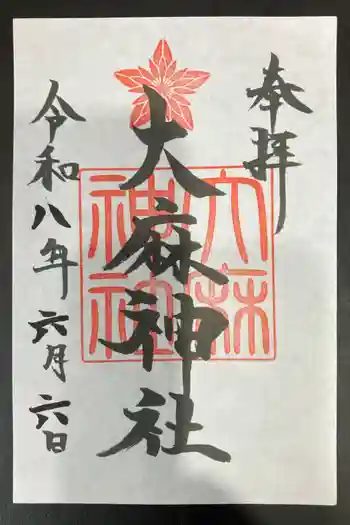 奉拝
大麻神社
大麻神社
令和八年六月六日